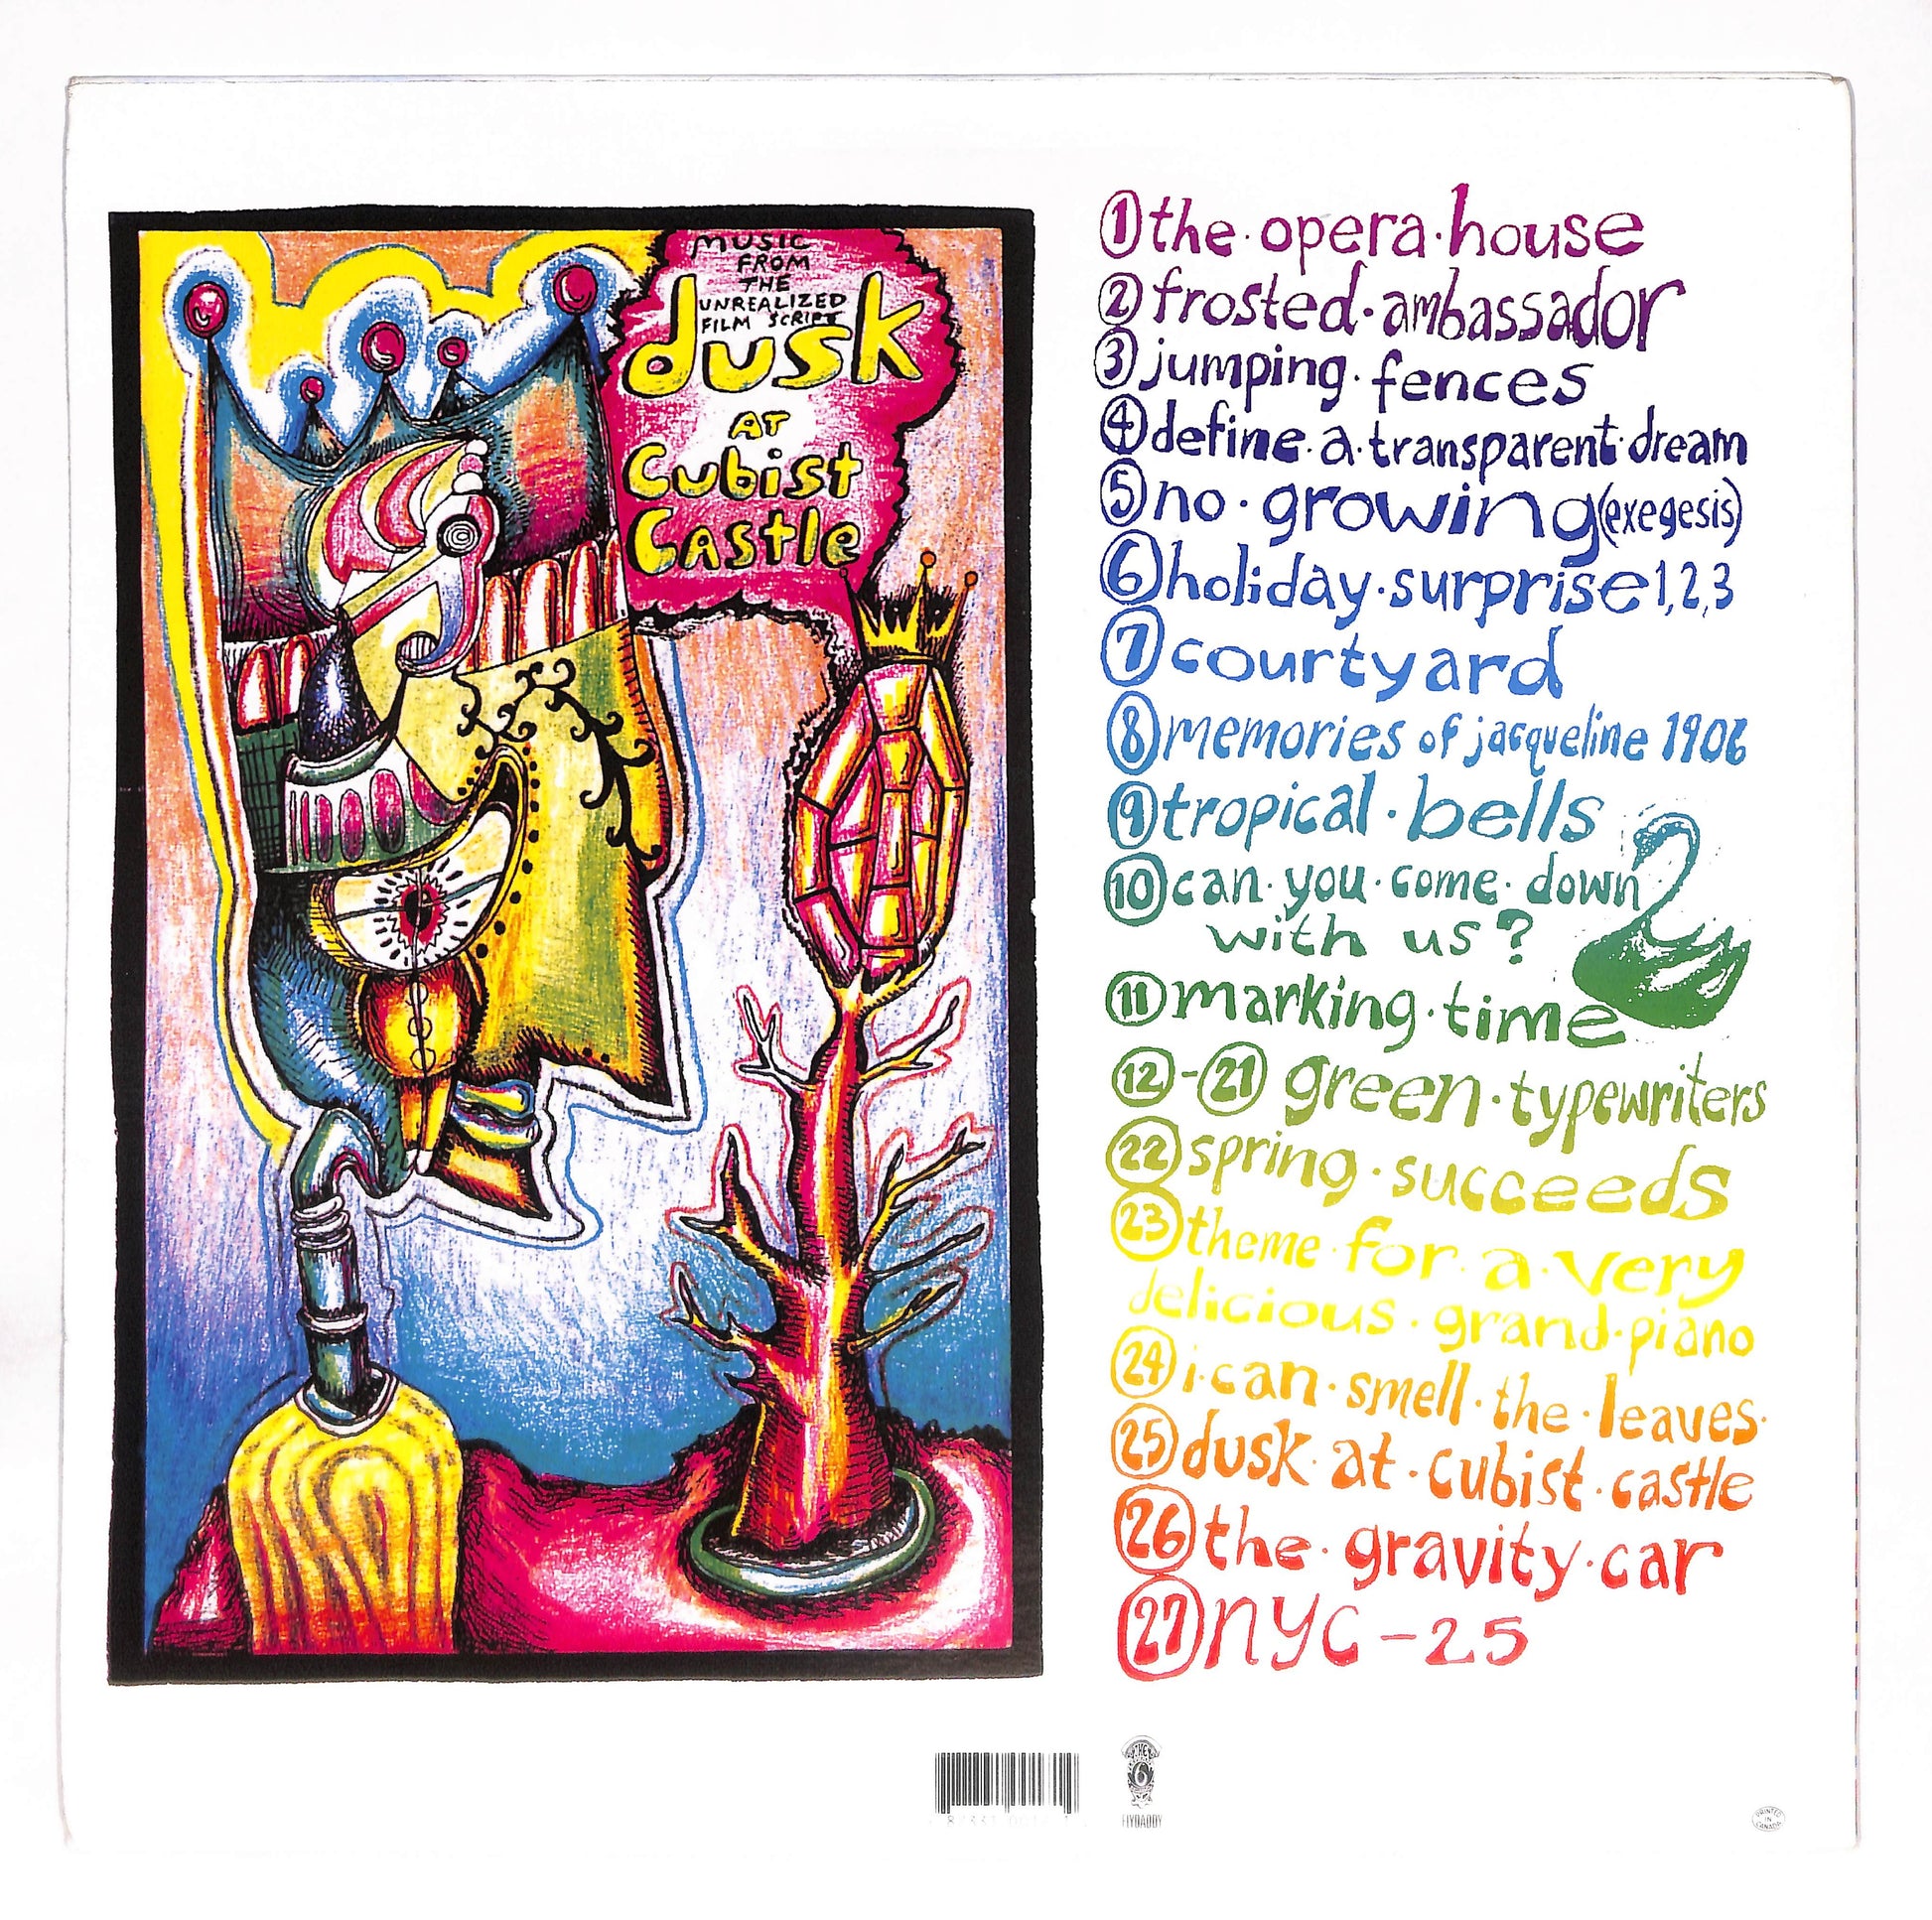 MUSIC
FROM
THE
UNREALIZED
FILM SCRIPT
dusk
AT
Cubist
Castle
1 the·opera·house
2 frosted·ambassador
3 jumping·fences
4 define·a·transparent·dream
5 no·growing (exegesis)
6 holiday·surprise 1,2,3
7 courtyard
8 memories of jacqueline 1906
9 tropical·bells
10 can·you·come·down
with us?
11 marking·time
12-21 green·typewriters
22 spring·succeeds
23 theme·for·a·very
delicious·grand·piano
24 i·can·smell·the·leaves·
25 dusk·at·cubist·castle
26 the·gravity·car
27 nyc-25
THE
6
FLYDADDY
PRINTED
IN
CANADA